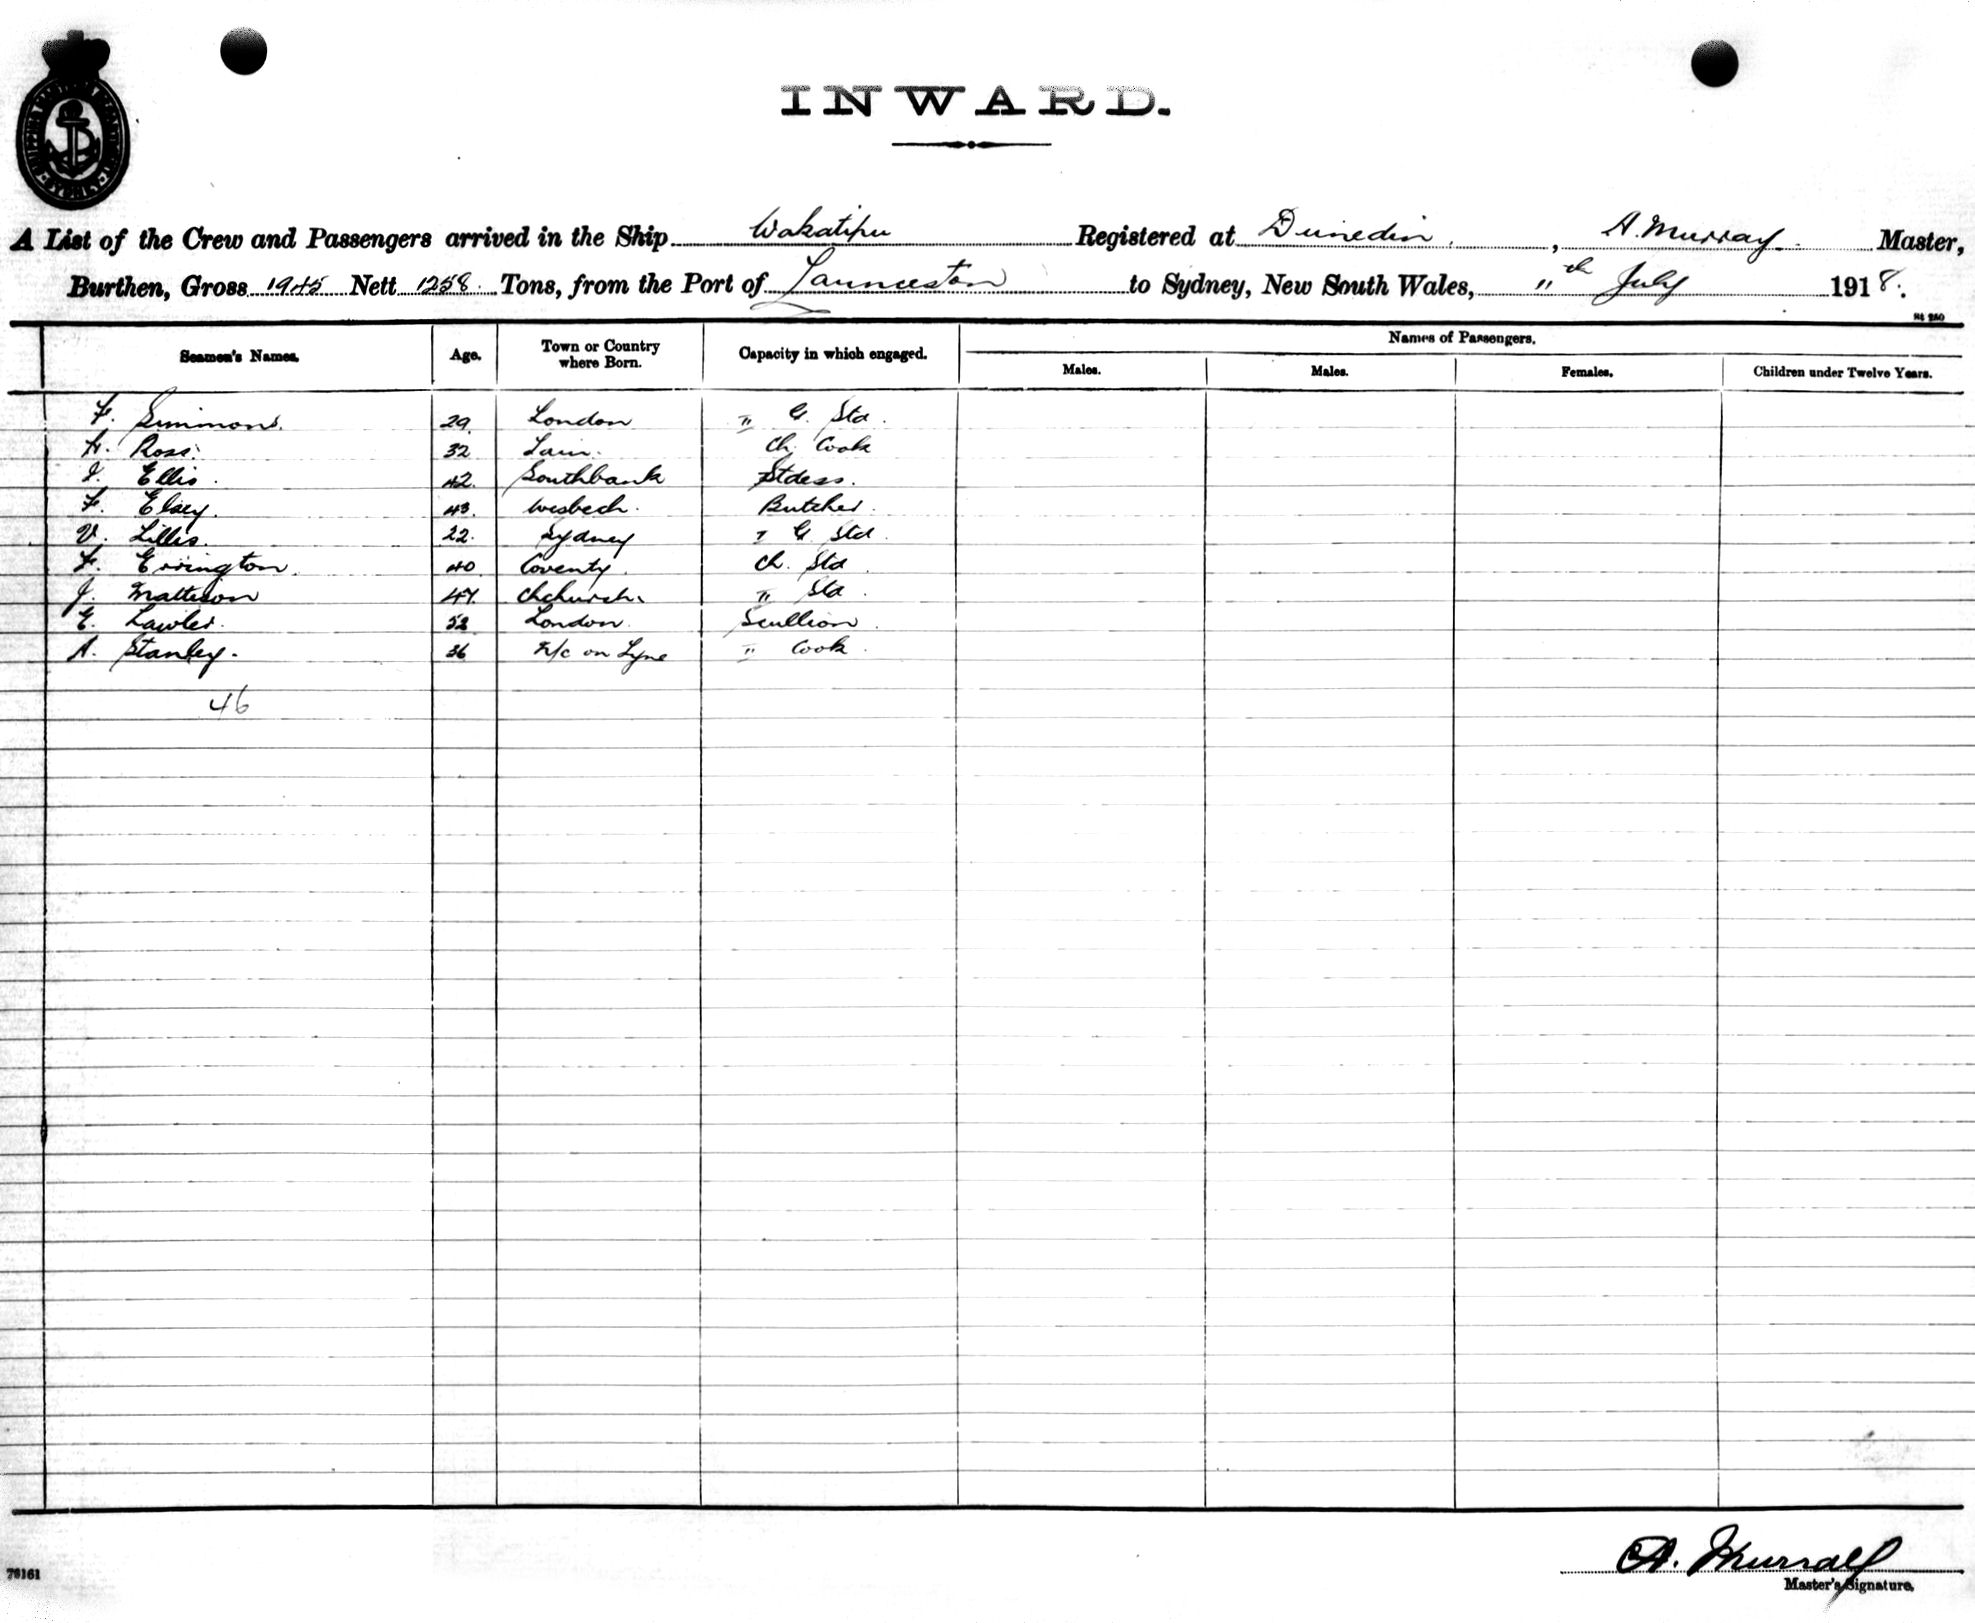 INWARD.
A List of the Crew and Passengers arrived in the Ship Wakatipu Registered at Dunedin, A. Murray Master,
Burthen, Gross 1945 Nett 1258 Tons, from the Port of Launceston to Sydney, New South Wales, " th July 1918.
Seamen's Names. Age. Town or Country where Born. Capacity in which engaged. Names of Passengers.
Males. Males. Females. Children under Twelve Years.
F. Simmons. 29. London " G. Std.
H. Ross. 32 Ch. Cook
Ellis. 42. Southbank Stdess.
F. Elsey. 43. Wesbech. Butcher.
V. Lillis. 22. Sydney " G Std.
F. Errington. 40. Coventy. Ch. Std
J. Mattison 47. Chchurch. " Std.
E. Lawler. 52 London. Scullion.
A. Stanley. 36 N/c on Tyne " Cook.
46
A. Murray
Master's Signature.
76161